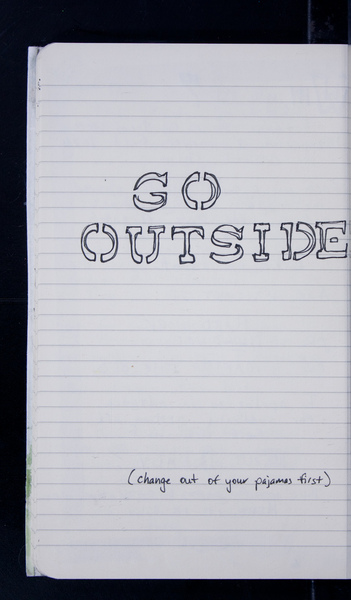 GO
OUTSIDE
(change out of your pajamas first)